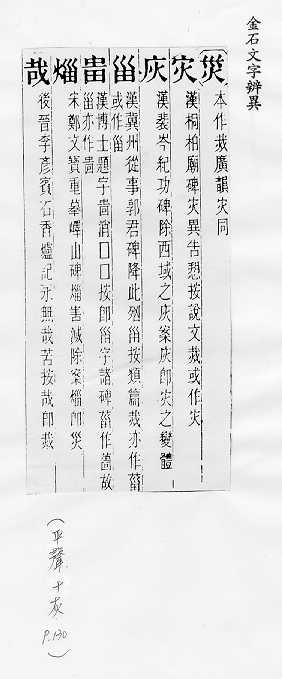 金石文字辨異
〔災〕本作烖廣韻灾同
灾 漢桐柏廟碑灾異告愬按說文烖或作灾
灰 漢裴岑紀功碑除西域之灰案灰卽灾之變體
甾 漢冀州從事郭君碑降此殃甾按須篇烖亦作葘
或作甾
畕 漢博士題字畕消囗囗按卽甾字諸碑葘作
甾亦作畕
熖 宋鄭文寶重摹嶧山碑熖害滅除案熖卽災
哉 後晉李彥賓石香爐記永無哉苦按哉卽烖
(平聲十灰
P.130)